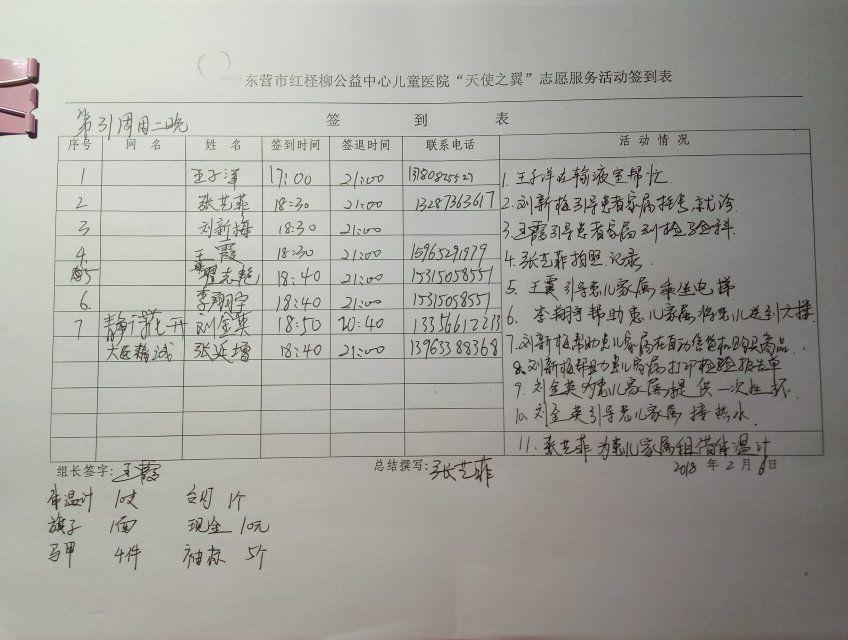 东营市红柽柳公益中心儿童医院“天使之翼”志愿服务活动签到表
第31周周二晚 签 到 表
序号 网 名 姓 名 签到时间 签退时间 联系电话 活 动 情 况
1 王子洋 17:00 21:00
2 张艺菲 18:30 21:00 13287363617
3 刘新梅 18:30 21:00
4. 王霞 18:30 21:00 15965291979
5 翟志艳 18:40 21:00 15315058551
6. 李翔宇 18:40 21:00 15315058551
7 静待花开 刘金英 18:50 20:40 13356612213
大医精诚 张延增 18:40 21:00 13963388368
1. 王子洋在输液室帮忙.
2. 刘新梅引导患者家属挂号就诊.
3. 王霞引导患者家属到检验科.
4. 张艺菲拍照记录.
5. 王霞引导患儿家属乘坐电梯
6. 李翔宇帮助患儿家属将患儿送到六楼.
7. 刘新梅帮助患儿家属在自动售货机购买商品.
8. 刘新梅帮助患儿家属打印检验报告单
9. 刘金英为患儿家属提供一次性杯.
10. 刘金英引导患儿家属接热水.
11. 张艺菲为患儿家属租借体温计
组长签字:王霞 总结撰写:张艺菲 2018 年 2 月 6日
体温计 10支 台灯 1个
旗子 1面 现金 10元
马甲 4件 袖标 5个